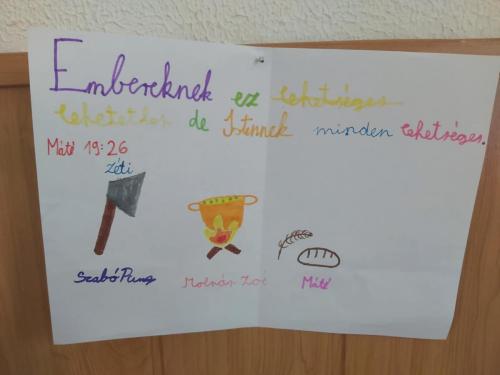 Embereknek ez lehetséges
lehetetlen de Istennek minden lehetséges.
Máté 19:26
Zéti
Szabó
Molnár Zoé
Máté